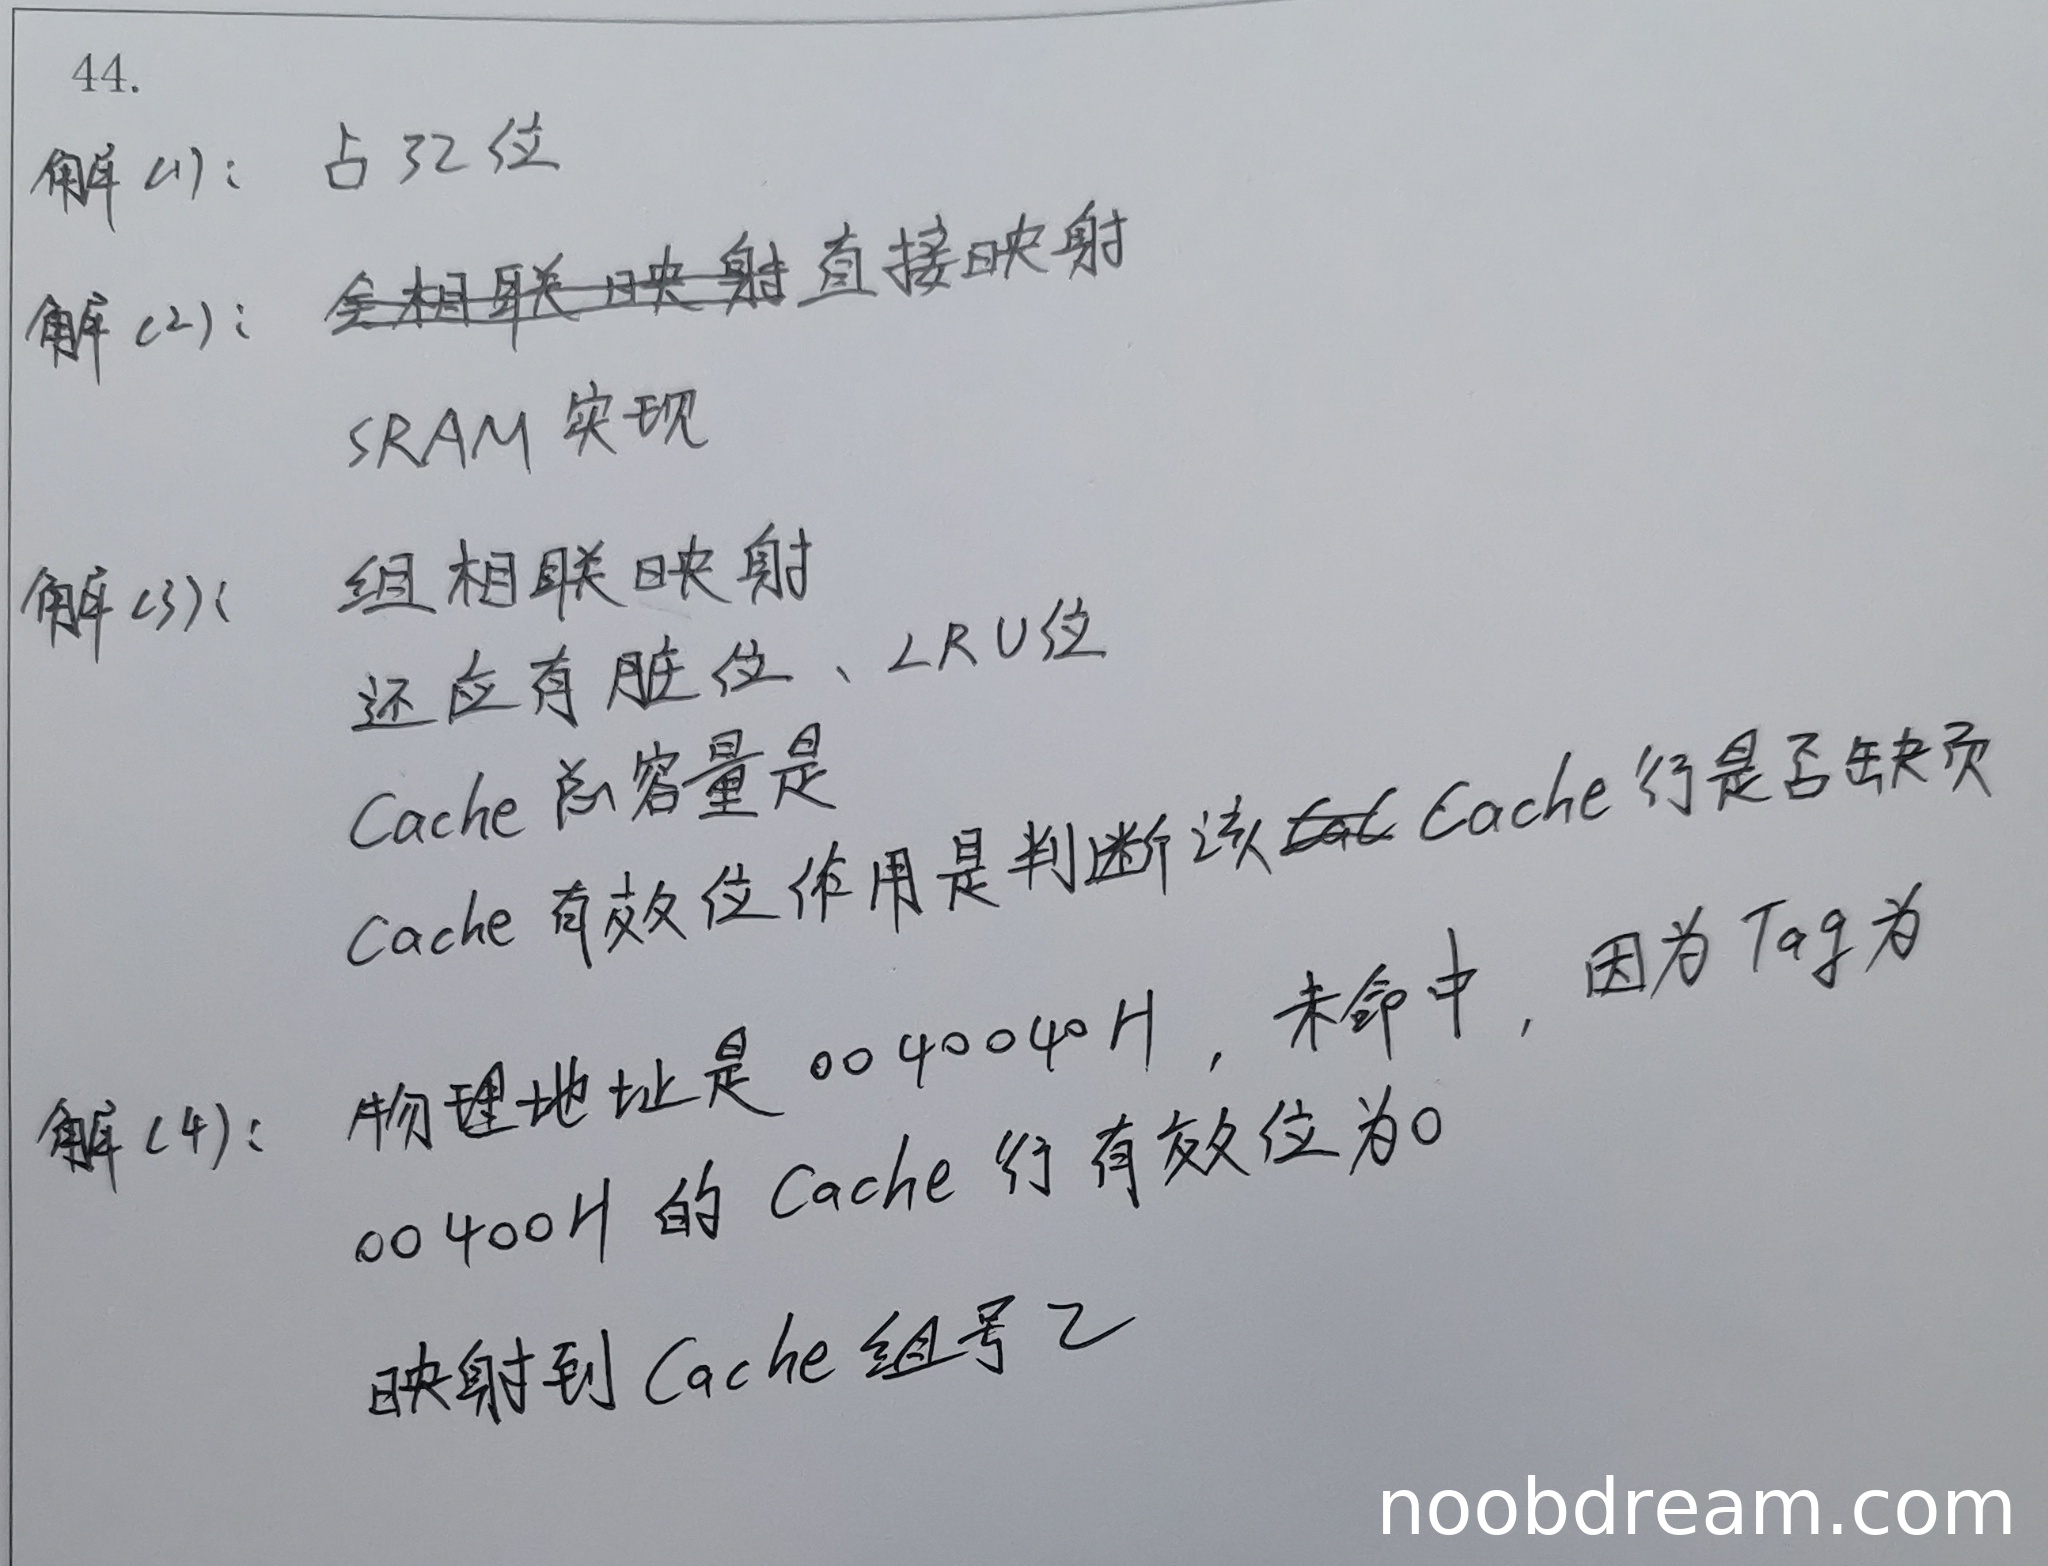 44.
解(1): 占32位
解(2): 全相联映射直接映射
SRAM实现
解(3): 组相联映射
还应有脏位、LRU位
Cache总容量是
Cache有效位作用是判断该Cache行是否缺页
解(4): 物理地址是0040040H, 未命中, 因为Tag为
00400H的Cache行有效位为0
映射到Cache组号2
noobdream.com